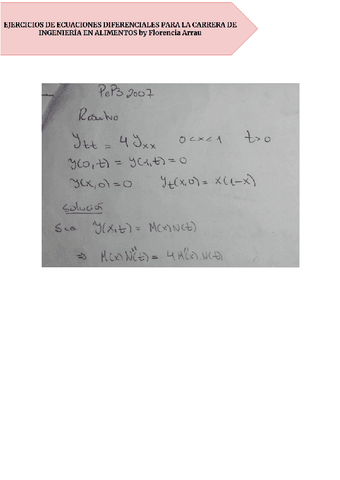 EJERCICIOS DE ECUACIONES DIFERENCIALES PARA LA CARRERA DE
INGENIERÍA EN ALIMENTOS by Florencia Arrau
PEP3 2007
Resuelva
y_tt = 4 y_xx 0<x<1 t>0
y(0,t) = y(1,t) = 0
y(x,0) = 0 y_t(x,0) = x(1-x)
Solución
Sea y(x,t) = M(x)N(t)
⇒ M(x)N''(t) = 4M''(x)N(t)